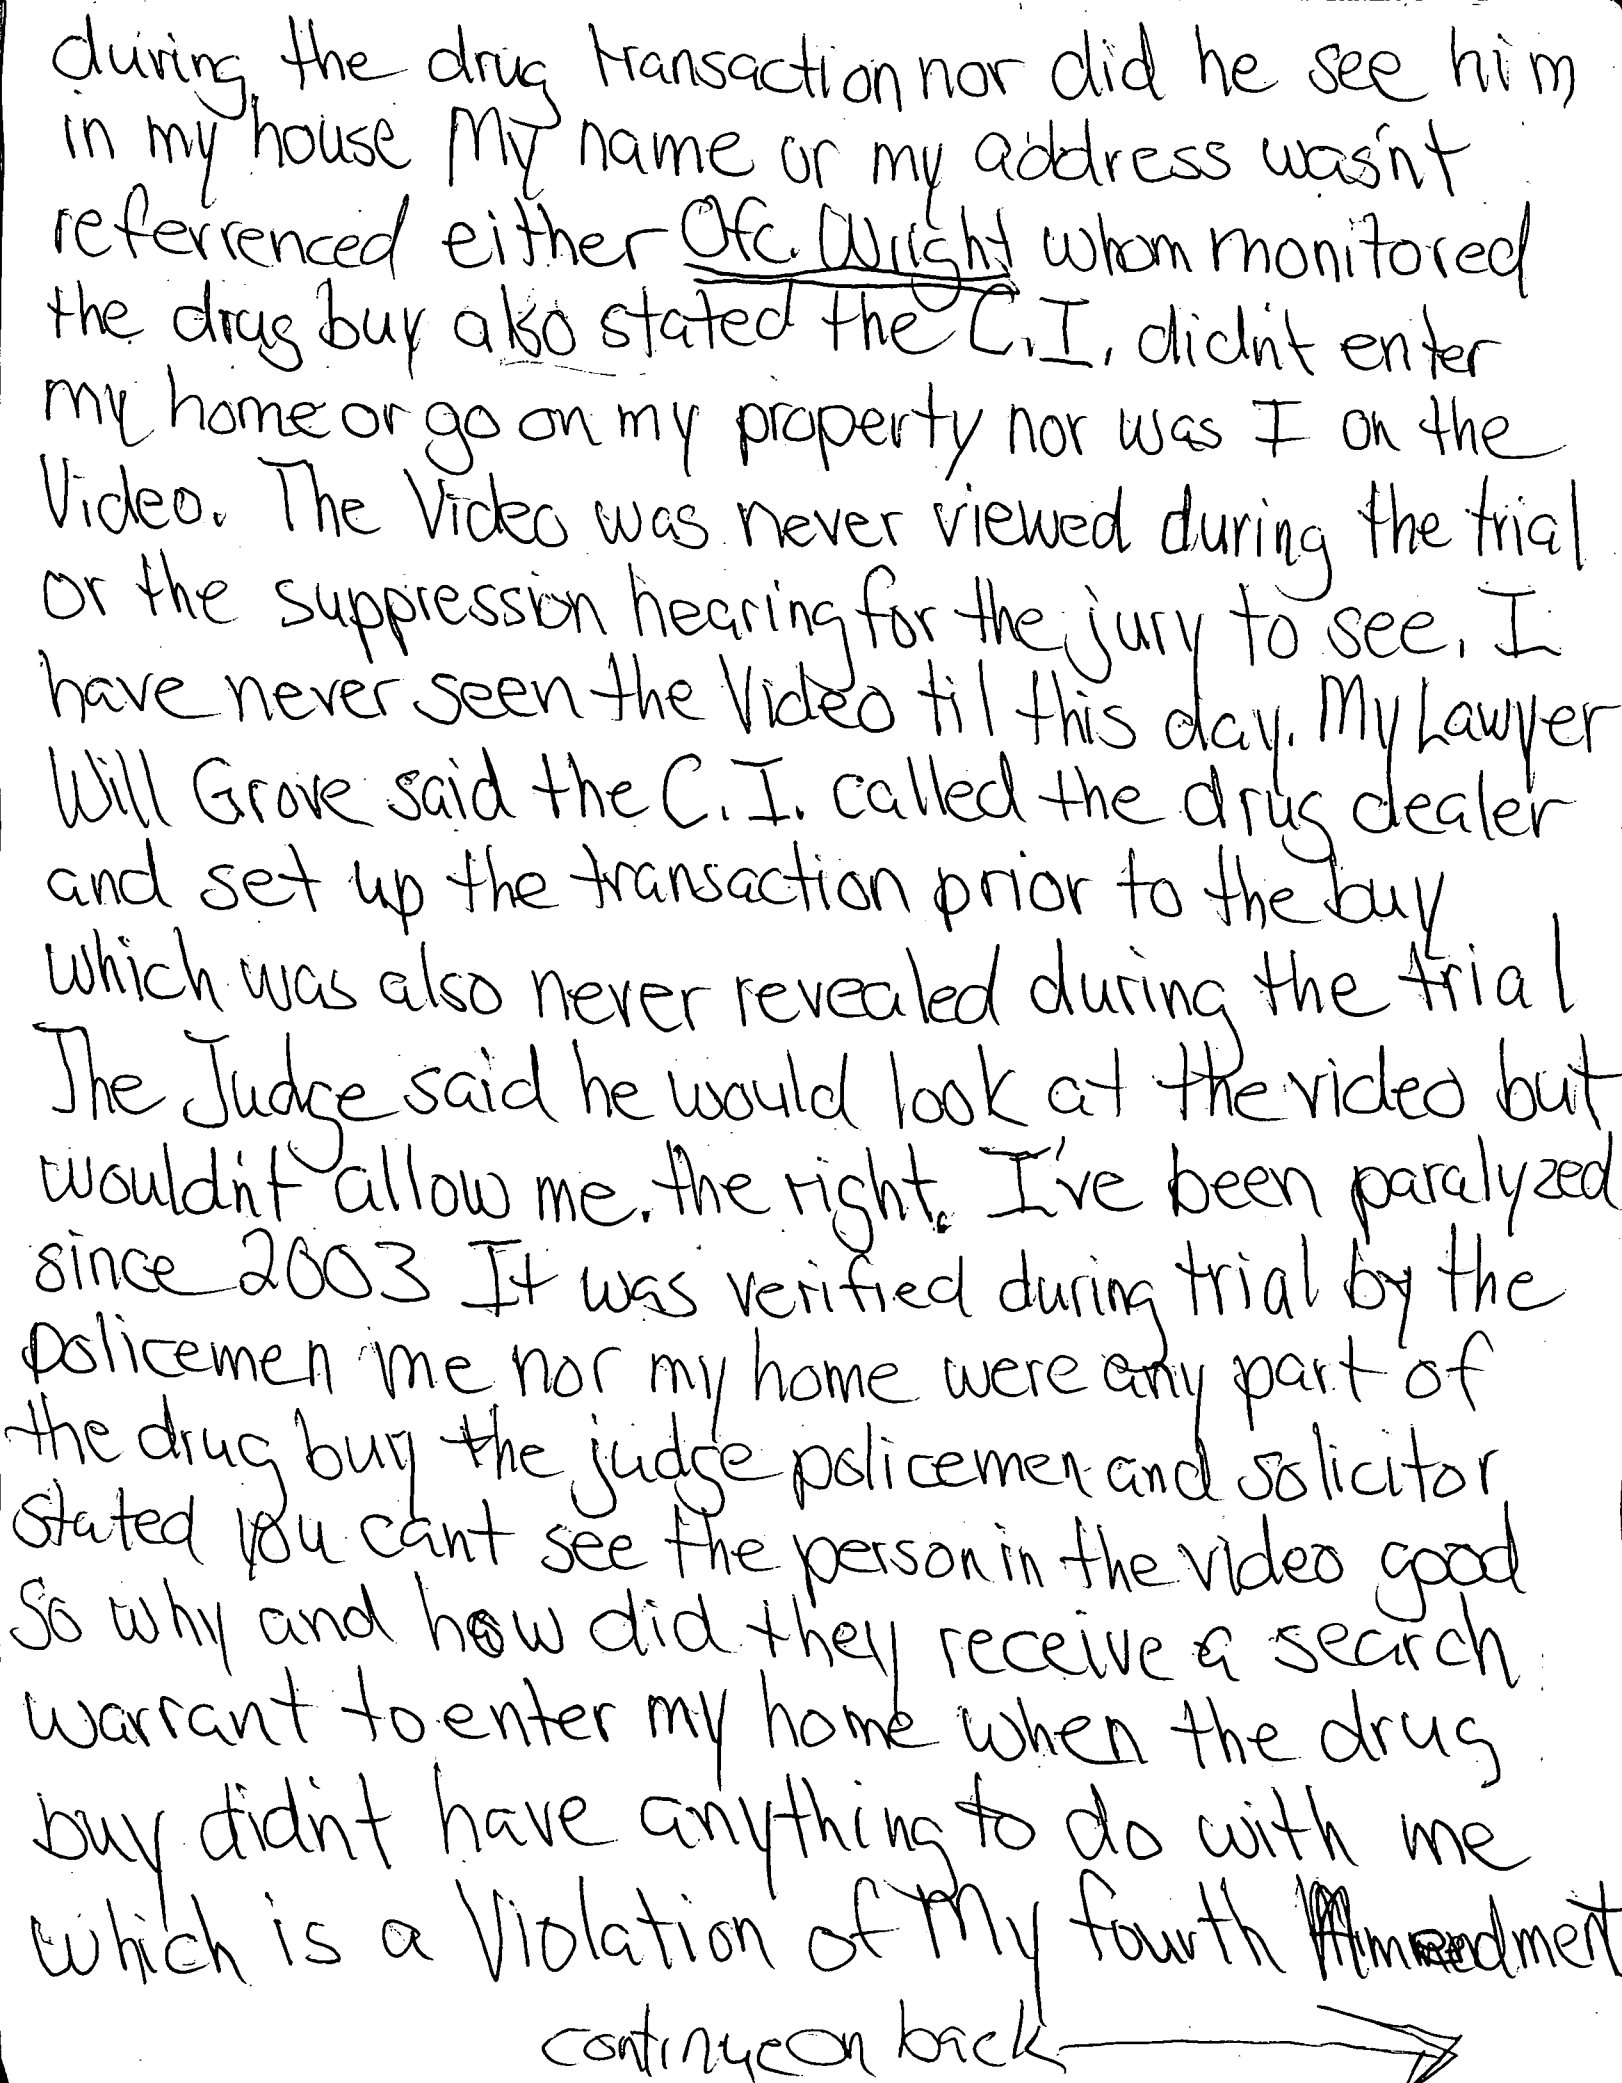 during the drug transaction nor did he see him
in my house My name or my address was'nt
referrenced either Ofc. Wright whom monitored
the drug buy also stated the C.I. didn't enter
my home or go on my property nor was I on the
Video. The Video was never viewed during the trial
or the suppression hearing for the jury to see. I
have never seen the Video til this day. My Lawyer
Will Grove said the C.I. called the drug dealer
and set up the transaction prior to the buy
which was also never revealed during the trial
The Judge said he would look at the video but
wouldn't allow me. the right. I've been paralyzed
since 2003 It was verified during trial by the
policemen me nor my home were any part of
the drug buy the judge policemen and solicitor
stated you cant see the person in the video good
So why and how did they receive a search
warrant to enter my home when the drug
buy didn't have anything to do with me
which is a Violation of My fourth Ammendment
continue on back